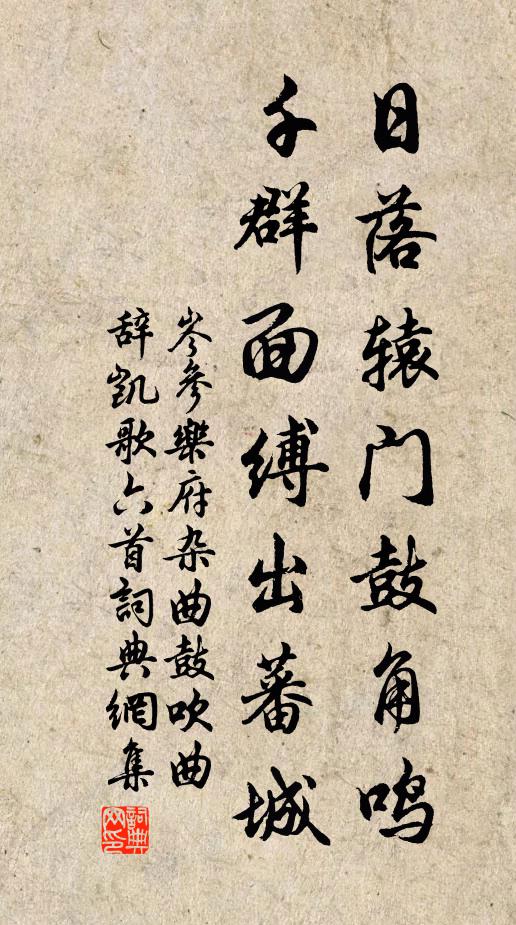 日落辕门鼓角鸣
千群面缚出蕃城
岑參樂府杂曲鼓吹曲
辞凯歌六首詞典網集
詞典网印